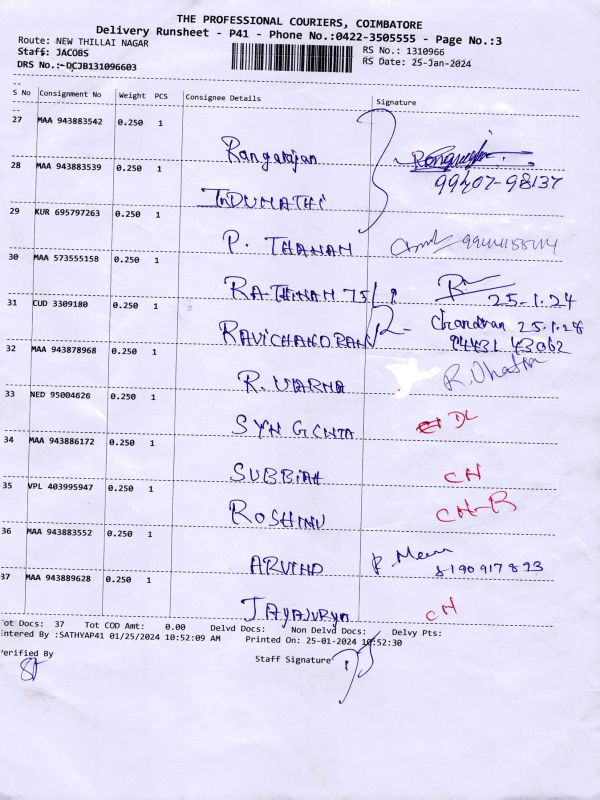 THE PROFESSIONAL COURIERS, COIMBATORE
Delivery Runsheet - P41 - Phone No.:0422-3505555 - Page No.:3
Route: NEW THILLAI NAGAR
RS No.: 1310966
Staff: JACOBS
RS Date: 25-Jan-2024
DRS No.:-DCJB131096603
S No Consignment No Weight PCS Consignee Details Signature
27 MAA 943883542 0.250 1
Rangarajan
99407-98137
28 MAA 943883539 0.250 1
INDUMATHI
29 KUR 695797263 0.250 1
P. THANAM
30 MAA 573555158 0.250 1
RATHINAM 75 R. 25-1-24
31 CUD 3309180 0.250 1
RAVICHANDRAN Chandran 25-1-24
94431 43062
32 MAA 943878968 0.250 1
R. VARNA
33 NED 95004626 0.250 1
DL
34 MAA 943886172 0.250 1
SUBBIAH CN
35 VPL 403995947 0.250 1
ROSHINI CN-B
36 MAA 943883552 0.250 1
ARVIND P. Meena
8190917893
37 MAA 943889628 0.250 1
CN
ot Docs: 37 Tot COD Amt: 0.00 Delvd Docs: Non Delvd Docs: Delvy Pts:
ntered By :SATHYAP41 01/25/2024 10:52:09 AM Printed On: 25-01-2024 10:52:30
erified By Staff Signature